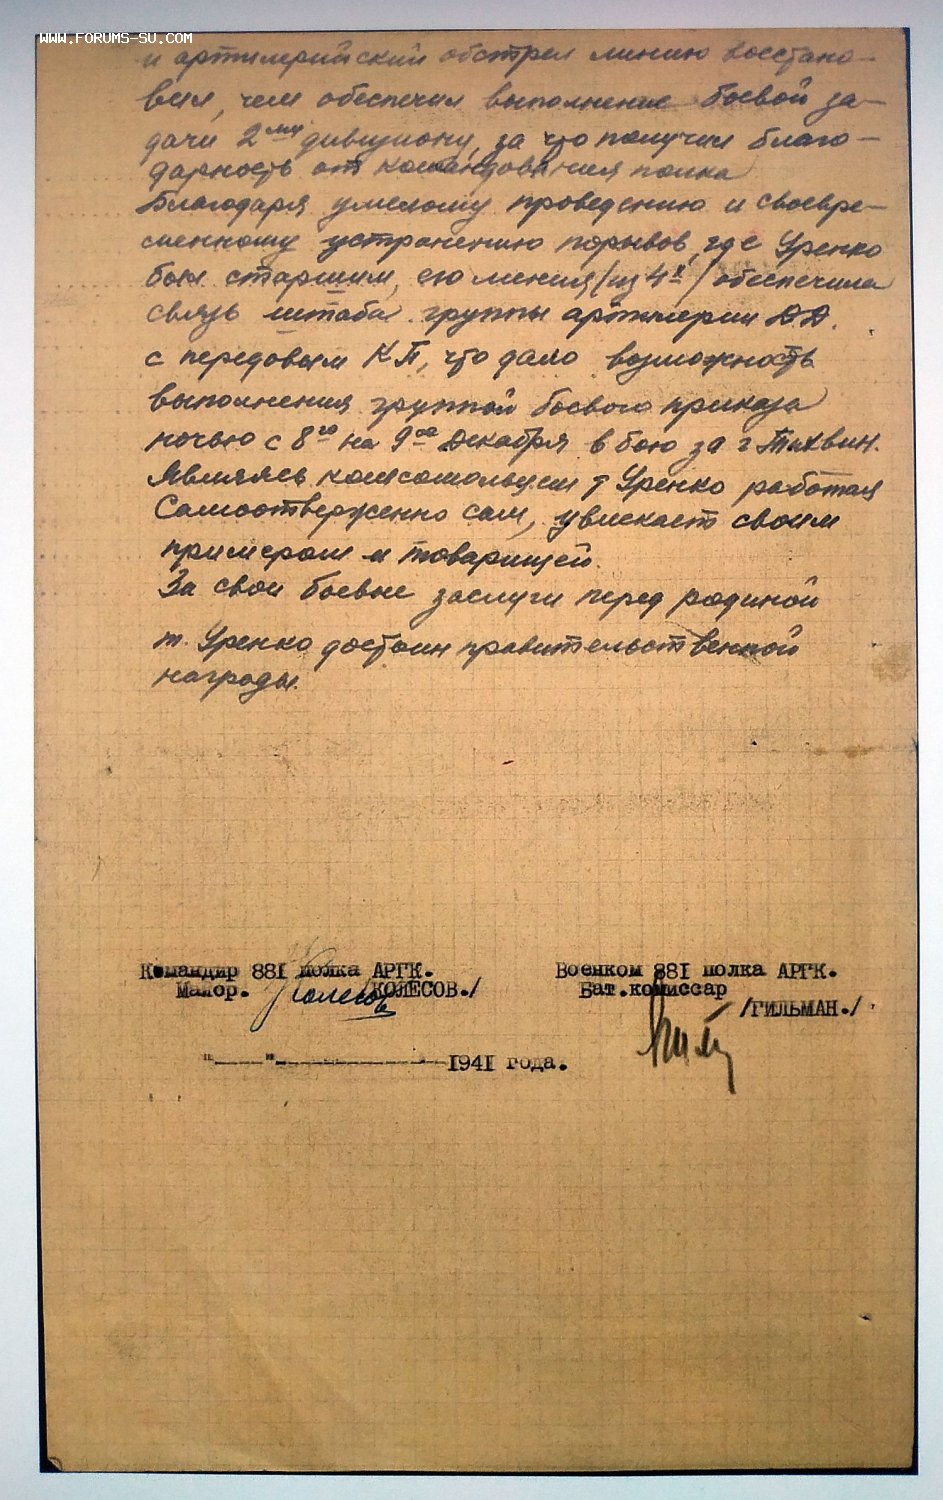 WWW.FORUMS-SU.COM
и артилерийский обстрел линию восстано-
вил, чем обеспечил выполнение боевой за-
дачи 2му дивизиону, за что получил благо-
дарность от командования полка
Благодаря умелому проведению и своевре-
менному устранению порывов, где Уренко
был старшим, его линия /из 4х/ обеспечила
связь штаба группы артилерии ДД.
с передовым КП, что дало возможность
выполнения группой боевого приказа
ночью с 8го на 9ое декабря в бою за г Тихвин.
Являясь комсомольцем т Уренко работая
самоотверженно сам, увлекает своим
примером и товарищей.
За свои боевые заслуги перед родиной
т. Уренко достоин правительственной
награды.
Командир 881 полка АРГК. Военком 881 полка АРГК.
Майор. /КОЛЕСОВ./ Бат.комиссар
/ГИЛЬМАН./
"——"—————1941 года.